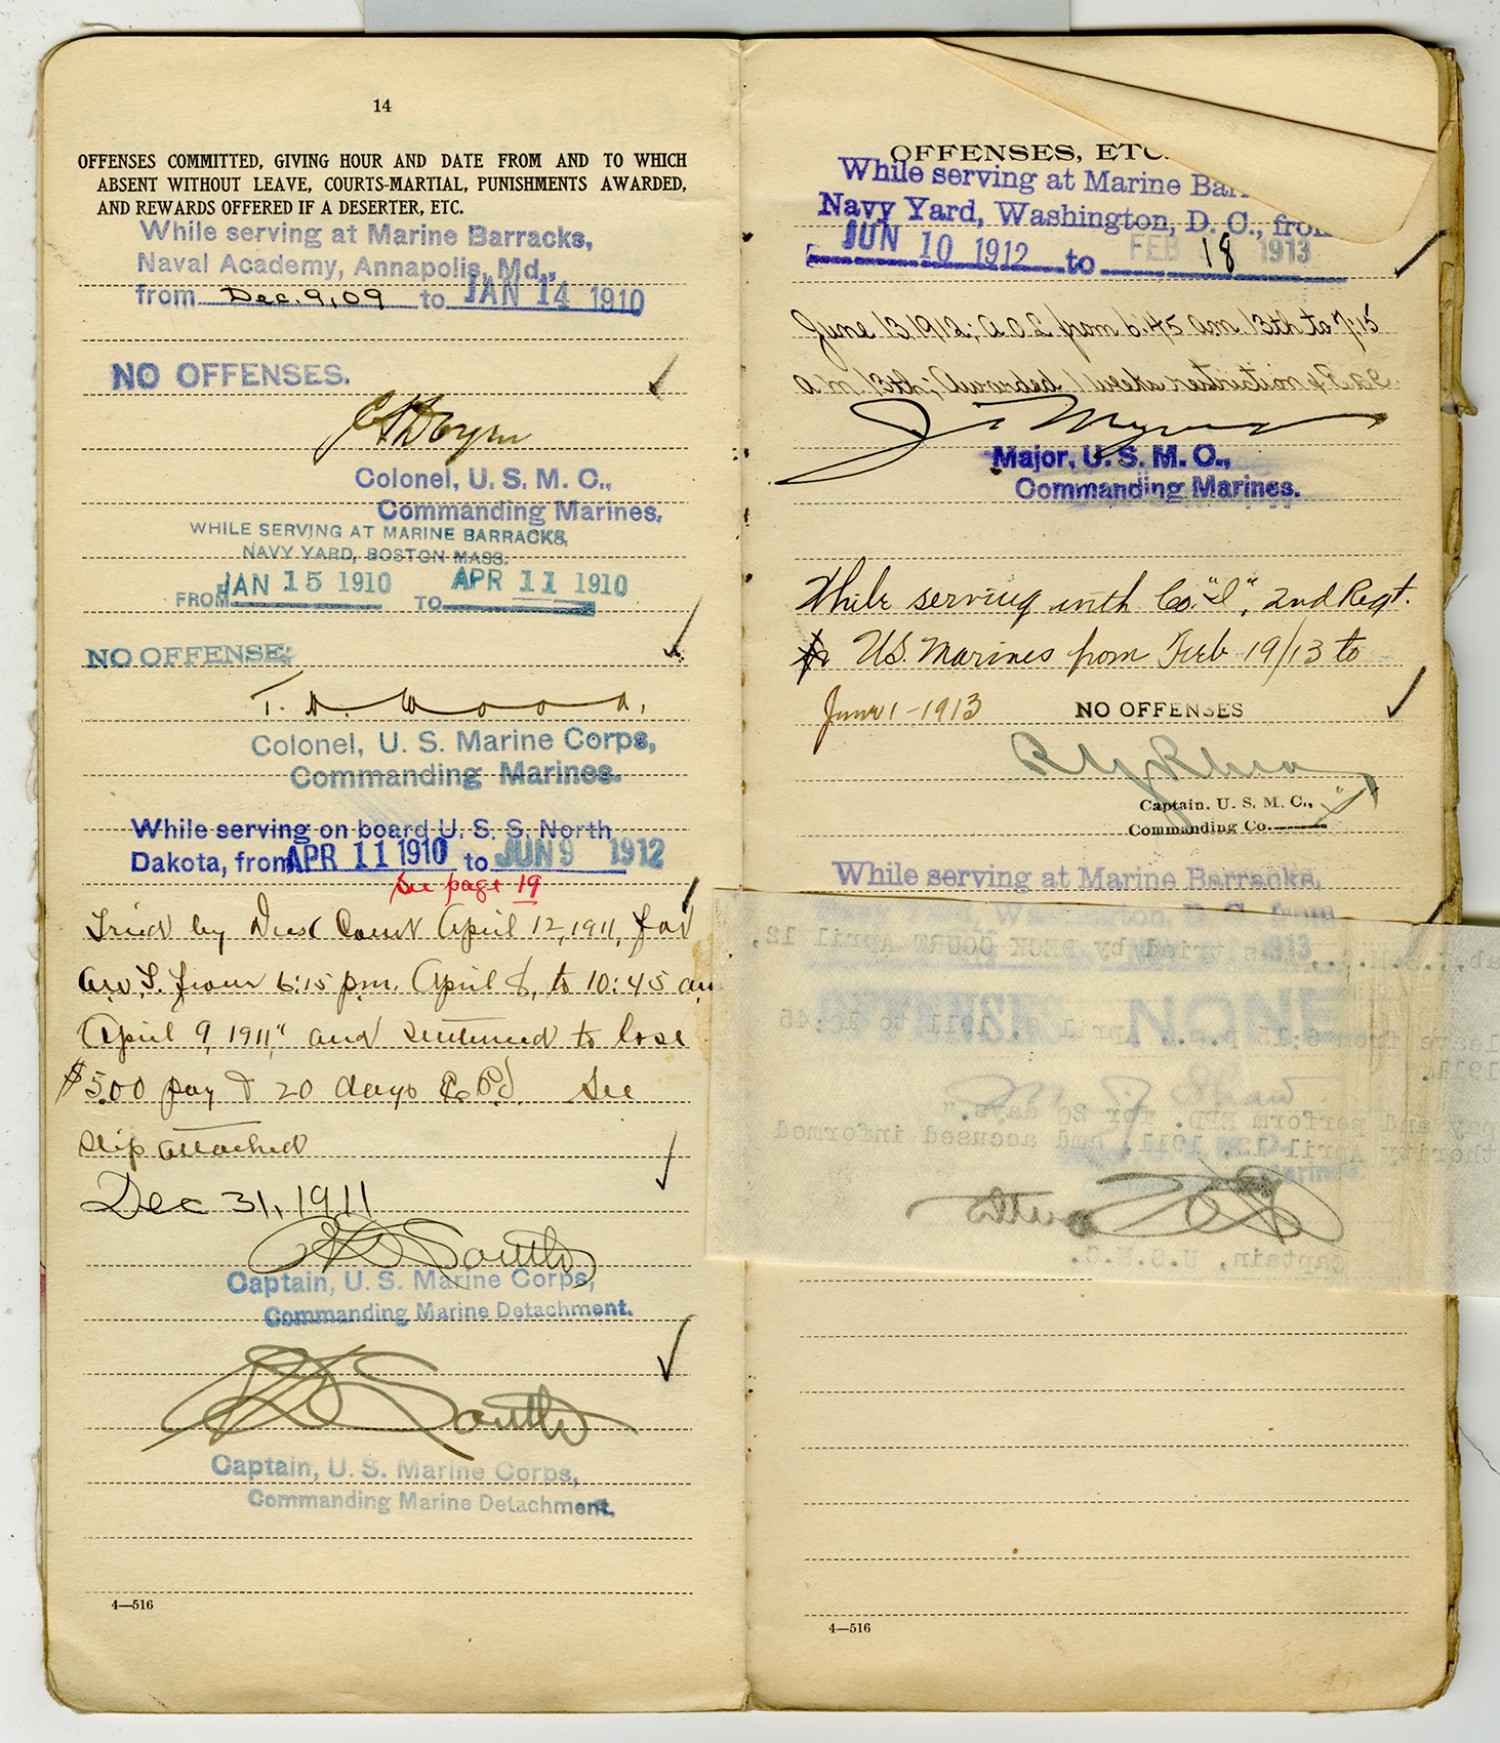 14
OFFENSES COMMITTED, GIVING HOUR AND DATE FROM AND TO WHICH
ABSENT WITHOUT LEAVE, COURTS-MARTIAL, PUNISHMENTS AWARDED,
AND REWARDS OFFERED IF A DESERTER, ETC.
While serving at Marine Barracks,
Naval Academy, Annapolis, Md.,
from Dec. 9, 09 to JAN 14 1910
NO OFFENSES.
Colonel, U. S. M. C.,
Commanding Marines.
WHILE SERVING AT MARINE BARRACKS,
NAVY YARD, BOSTON MASS.
FROM JAN 15 1910 TO APR 11 1910
NO OFFENSE
Colonel, U. S. Marine Corps,
Commanding Marines.
While serving on board U. S. S. North
Dakota, from APR 11 1910 to JUN 9 1912
See page 19
Tried by Deck Court April 12, 1911, for
from 6:15 p.m. April 8, to 10:45 am
April 9, 1911," and sentenced to lose
$5.00 pay & 20 days E.P.D. See
slip attached
Dec 31, 1911
South
Captain, U. S. Marine Corps,
Commanding Marine Detachment.
South
Captain, U. S. Marine Corps,
Commanding Marine Detachment.
4—516
OFFENSES, ETC.
While serving at Marine Bar
Navy Yard, Washington, D. C., from
JUN 10 1912 to FEB 18 1913
June 13 1912; A.O.L from 6:45 am 13th to 7:15
a.m. 13th; Awarded 1 week restriction
Major, U. S. M. C.,
Commanding Marines.
While serving with Co. "I", 2nd Regt.
U.S. Marines from Feb 19/13 to
June 1-1913 NO OFFENSES
Captain, U. S. M. C.,
Commanding Co. "I"
While serving at Marine Barracks,
Navy Yard, Washington, D. C., from
1913
tried by DECK COURT April 12,
OFFENSES NONE
leave from 6:15 p.m. April 8, 1911 to 10:45
1911.
pay and perform EPD. for 20 days."
April 12, 1911, and accused informed
South
Captain, U.S.M.C.
4—516